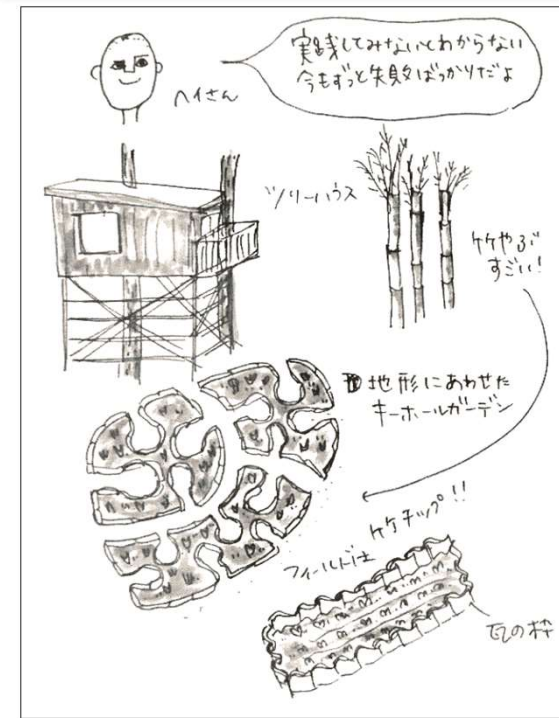 実践してみないとわからない
今もずっと失敗ばっかりだよ
ヘイさん
ツリーハウス
竹やぶ
すごい!
地形にあわせた
キーホールガーデン
竹チップ!!
フィールドは
瓦の枠